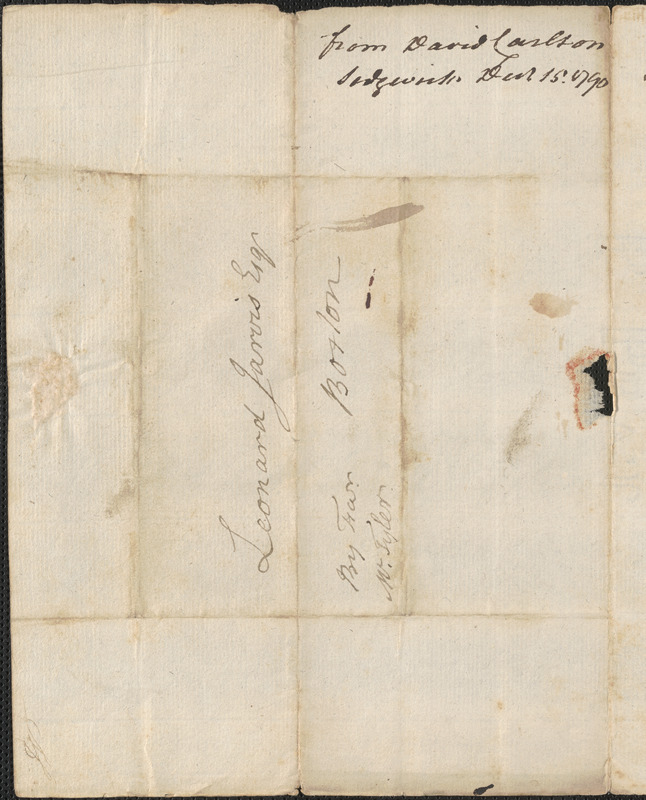 from David Carlton
Sedgwick Decr 15. 1790
Leonard Jarvis Esqr
Boston
By Favr
Mr. Tyler